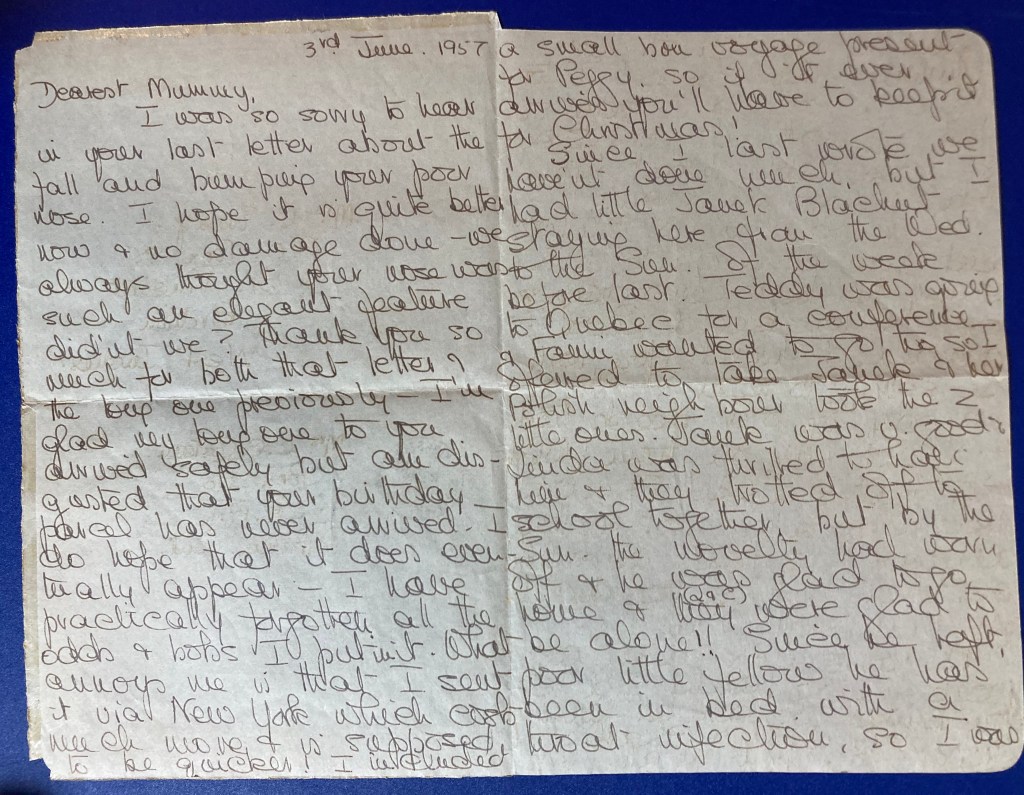 3rd June. 1957
Dearest Mummy,
I was so sorry to hear
in your last letter about the
fall and bumping your poor
nose. I hope it is quite better
now & no damage done - we
always thought your nose was
such an elegant feature
did'nt we? Thank you so
much for both that letter &
the long one previously - I'm
glad my long one to you
arrived safely but am dis-
gusted that your birthday
parcel has never arrived. I
do hope that it does even-
tually appear - I have
practically forgotten all the
odds & bobs I put in it. What
annoys me is that I sent
it via New York which cost
much more & is supposed
to be quicker! I included
a small bon voyage present
for Peggy. so if it ever
arrives you'll have to keep it
for Christmas!
Since I last wrote we
have'nt done much, but I
had little Janek Blachut
staying here from the Wed.
to the Sun. of the week
before last. Teddy was going
to Quebec for a conference
& wanted to go too, so I
offered to take Janek & her
Polish neighbour took the 2
little ones. Janek was v. good &
Linda was thrilled to have
him & they trotted off to
school together, but by the
Sun. the novelty had worn
off & he was glad to go
home & they were glad to
be alone!! Since he left,
poor little fellow he has
been in bed with a
throat infection, so I was